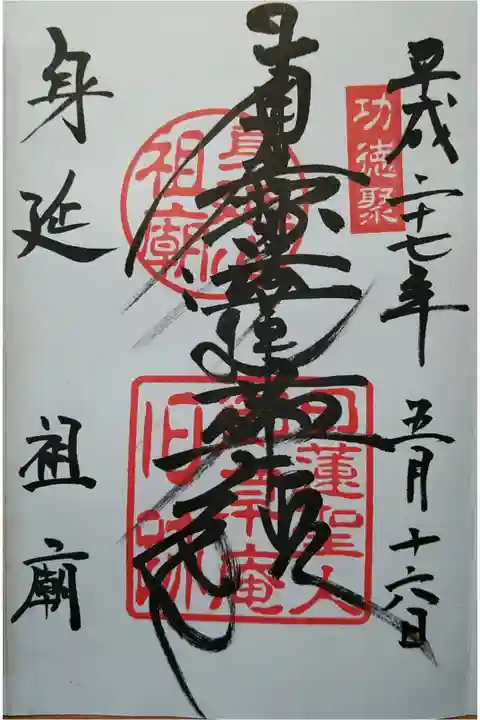 平成二十七年 五月十六日
功徳聚
南無妙法蓮華経
身延山
祖廟
日蓮聖人
御草庵
旧跡
身延 祖廟